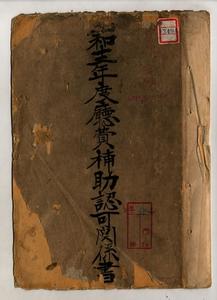 昭和十五年度廳費補助認可関係書